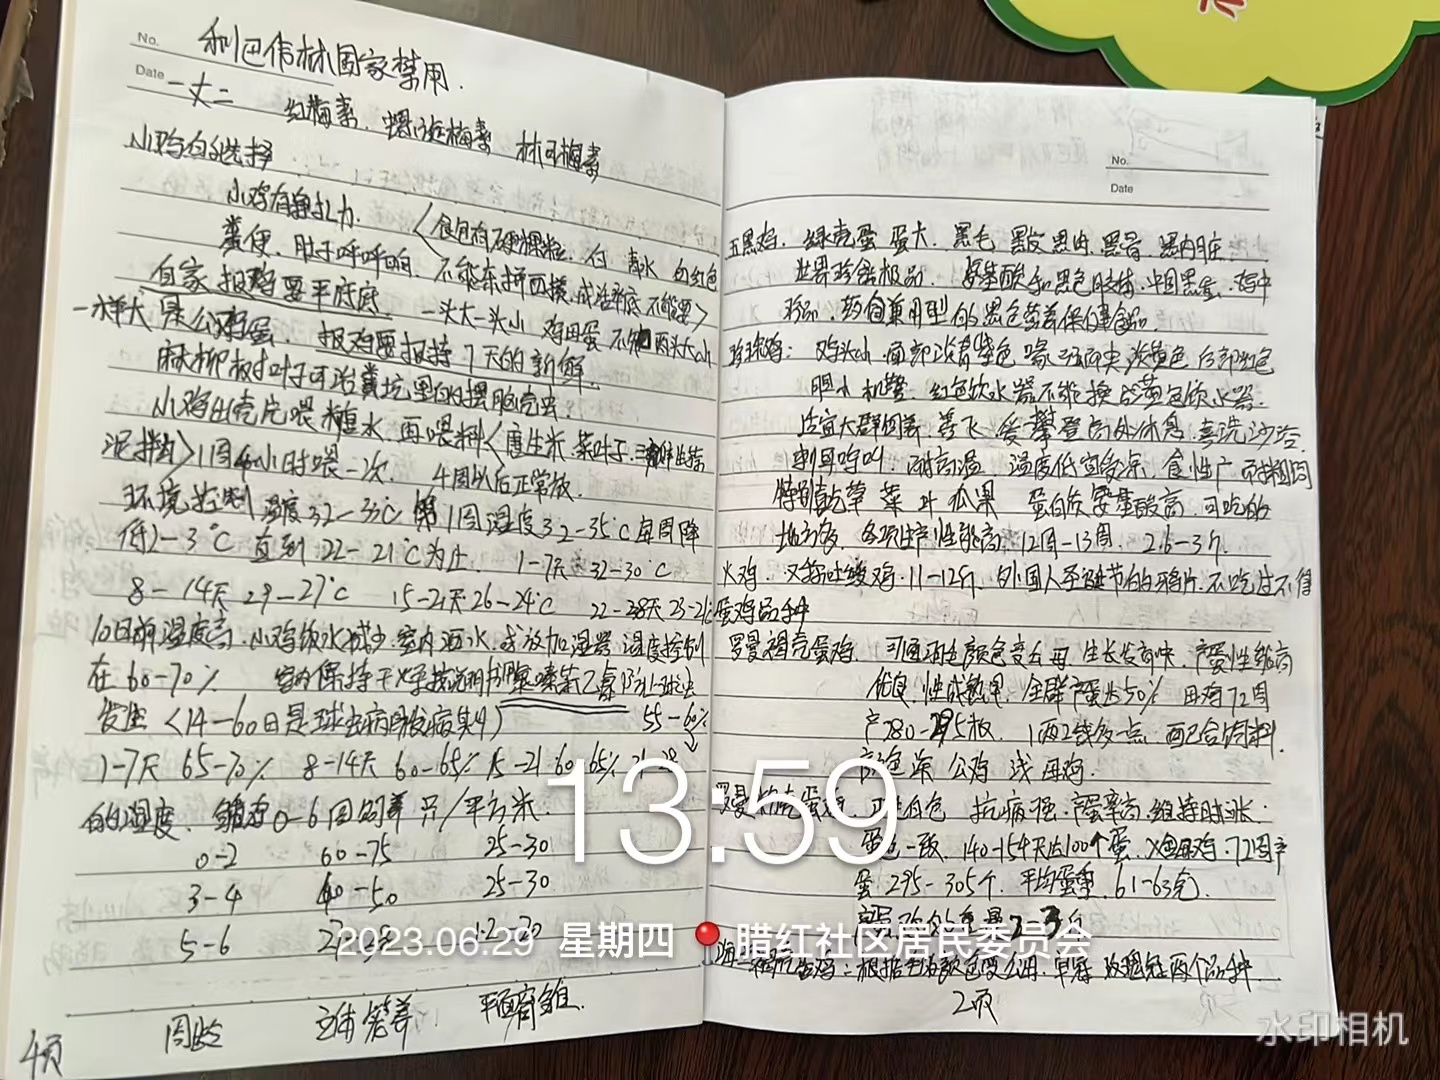 No.
利巴韦林国家禁用.
Date
红梅素. 螺旋梅素 林可梅素
小鸡的选择
小鸡有挣扎力.
食包有硬颗粒. 白 青水 白红色
粪便. 肚子呼呼响. 不能东拼西摸. 成活率底 不能要
自家报鸡要平底底 一头大一头小 鸡母蛋 不能两头大小
一样大 是公鸡蛋. 报鸡要报持7天的新鲜.
麻柳树叶子可治粪坑里的摆脑壳虫
小鸡出壳先喂糖水 再喂料 唐生米. 菜叶子.
1周4小时喂一次. 4周以后正常放.
环境控制 温度32-35℃ 第1周温度32-35℃ 每周降
低2-3℃ 直到22-21℃为止. 1-7天 32-30℃
8-14天 29-27℃ 15-21天 26-24℃ 22-28天 23-21℃
10日前湿度高. 小鸡饮水减少. 室内洒水. 或放加湿器 湿度控制
在60-70% 室内保持干净 按说明书 防止球虫
发生 (14-60日是球虫病的发病期) 55-60%
1-7天 65-70% 8-14天 60-65% 15-21 60-65% 21-28
的湿度. 0-6周饲养 只/平方米.
0-2 60-75 25-30
3-4 40-50 25-30
5-6 12-20
周龄 立体笼养 平面育雏.
4页
No.
Date
五黑鸡. 绿壳蛋 蛋大. 黑毛 黑皮 黑肉. 黑骨. 黑内脏.
世界珍禽极品. 氨基酸和黑色 鸡中
珍品. 药食兼用型的黑色营养保健食品.
珍珠鸡: 鸡头小 面部 淡黄色 后部红色
胆小 机警. 红色饮水器不能换成黄色饮水器.
适宜大群饲养. 善飞. 爱攀登高处休息. 喜洗沙浴
刺耳鸣叫. 耐高温 温度低宜多. 食性广 耐粗饲
特别吃草 菜 叶 瓜果 蛋白质 氨基酸高. 可吃的
地方多. 各项生产性能高. 12周-13周. 2.6-3斤.
火鸡. 又称吐绶鸡. 11-12斤. 外国人圣诞节的 不吃过不得
蛋鸡品种
罗曼褐壳蛋鸡. 可通羽色颜色变公母. 生长发育快. 产蛋性能高
优良. 性成熟早. 全群产蛋达50% 母鸡72周
产280-295枚. 1两2钱多一点. 配合饲料.
颜色深 公鸡 浅 母鸡.
罗曼 羽毛白色 抗病强. 产蛋率高. 维持时涨.
蛋色一致. 140-154天 100个蛋. 母鸡. 72周产
蛋 295-305个. 平均蛋重. 61-63克.
2-3斤
褐壳蛋鸡: 根据羽毛颜色变公母. 两个品种
2页
13:59
2023.06.29 星期四 腊红社区居民委员会
水印相机